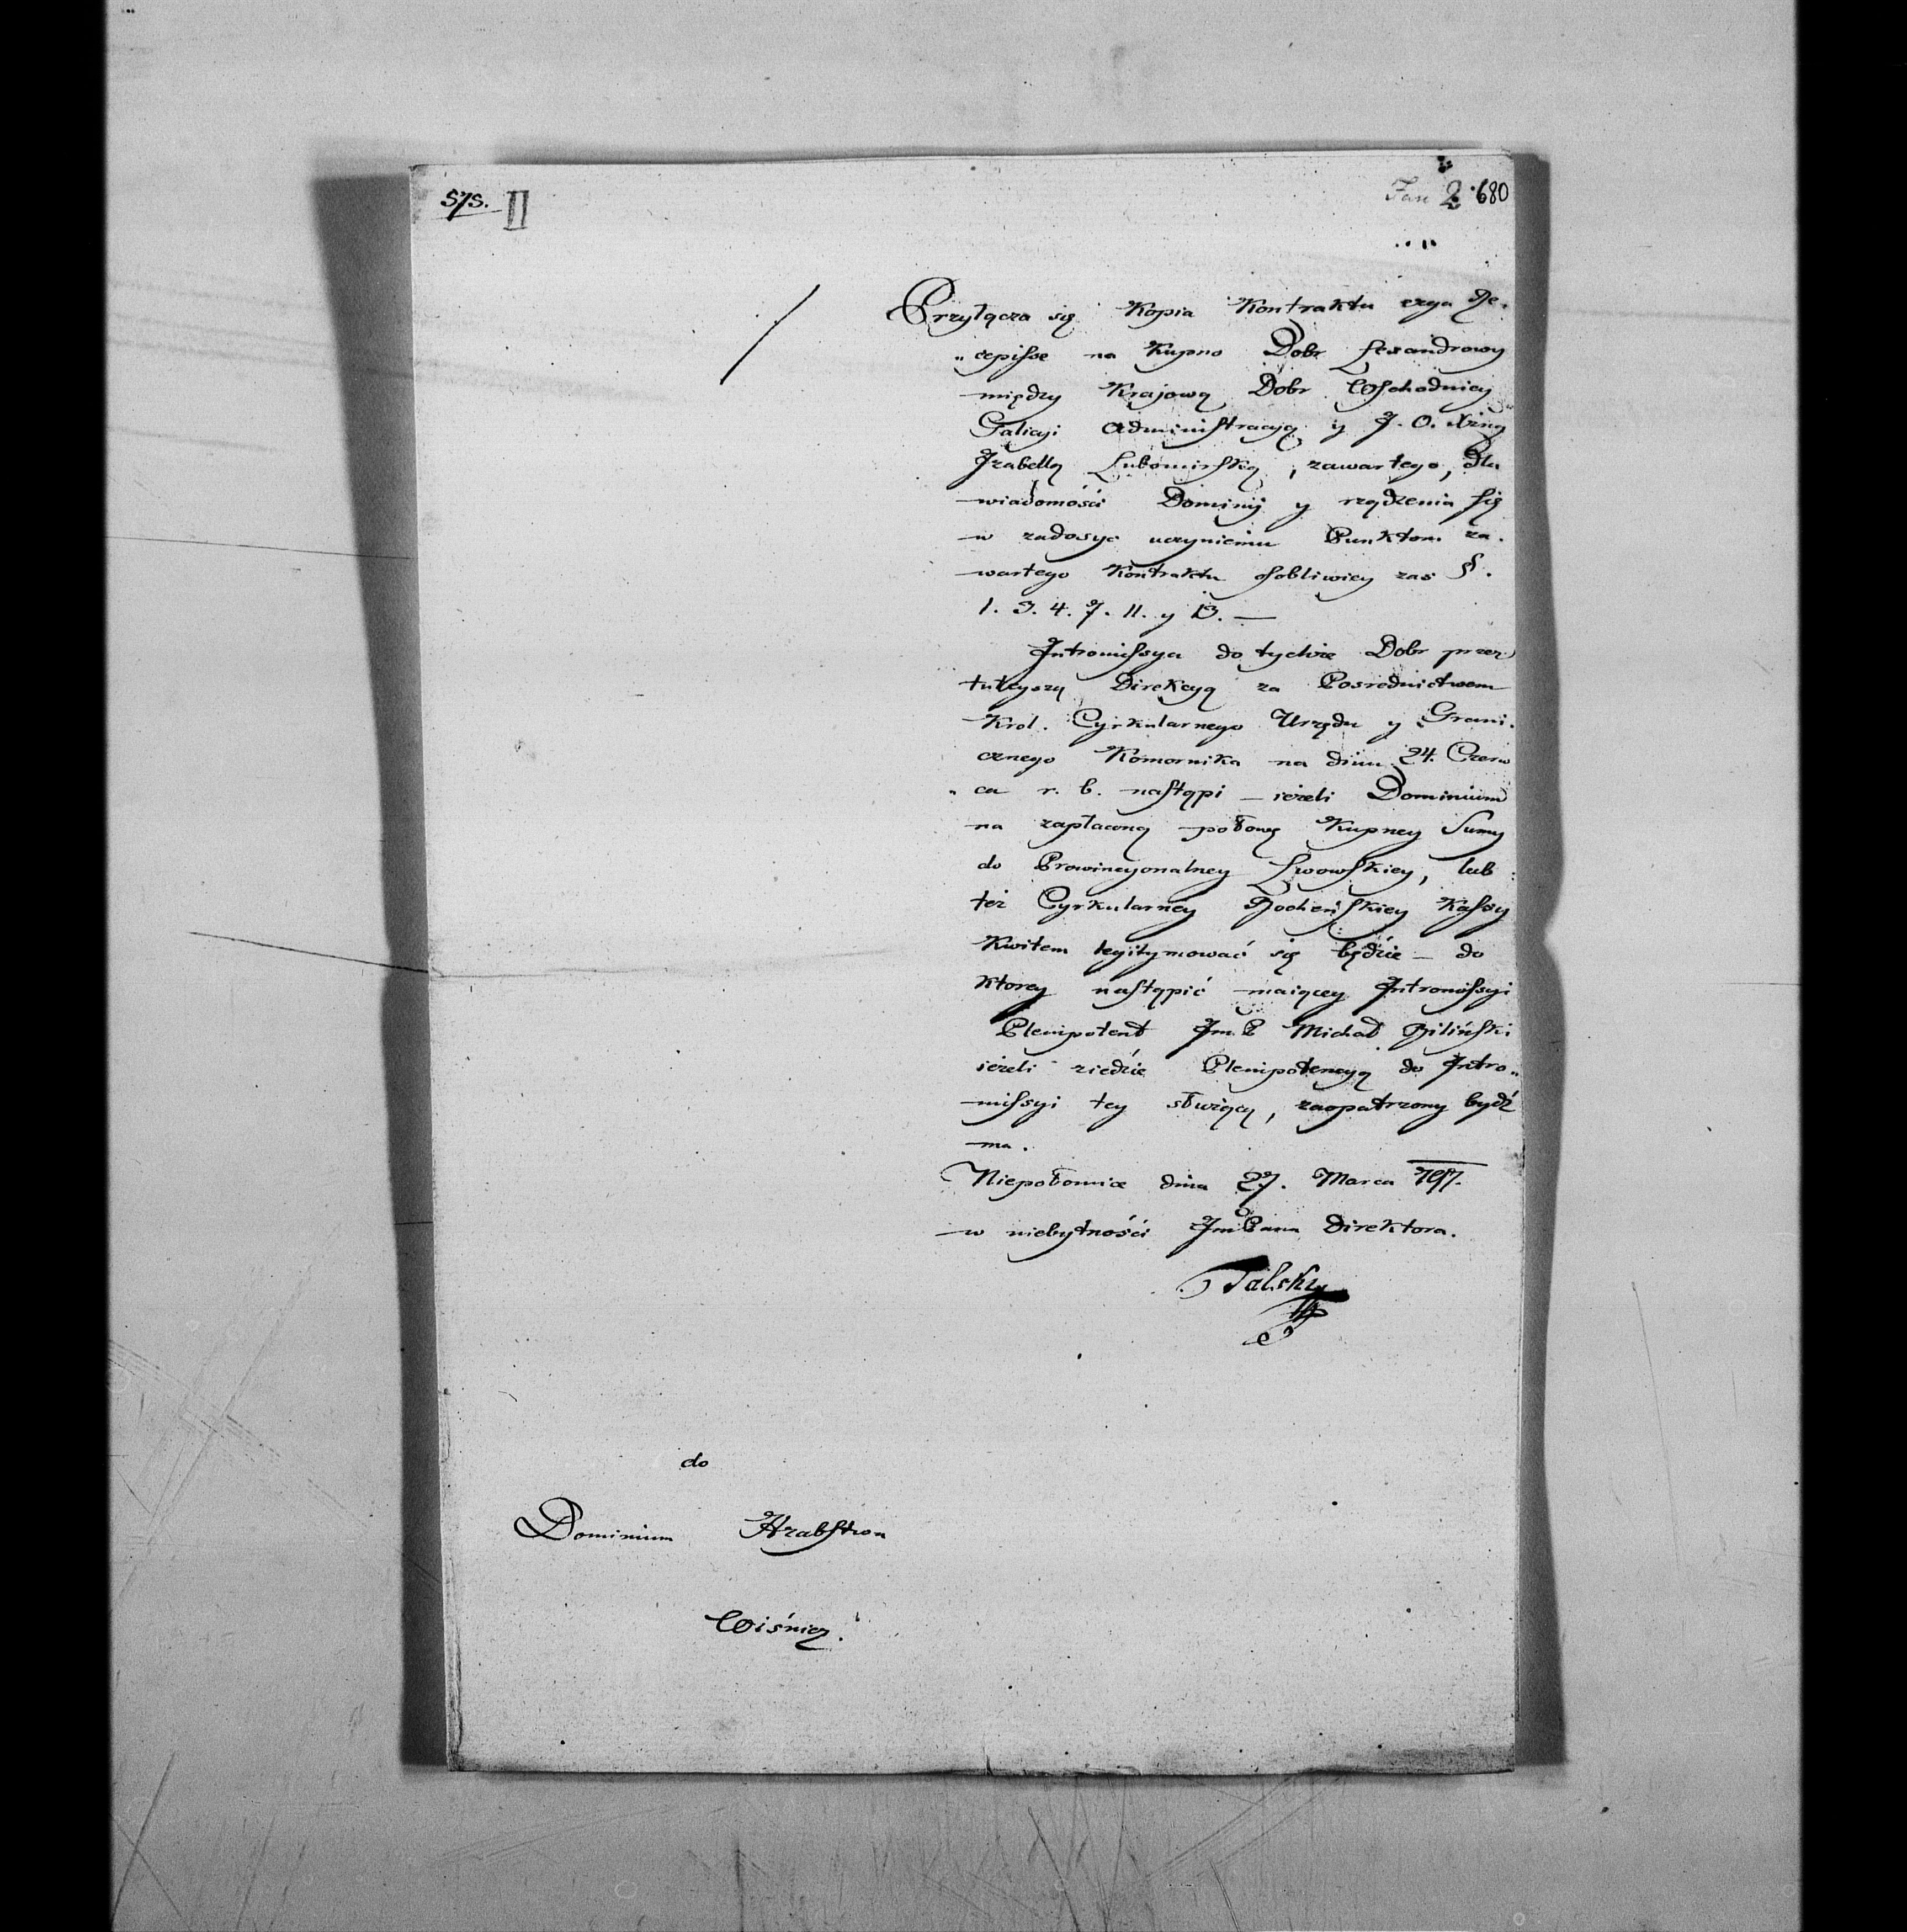 S7S. II
Fasc 2. 680
Przyłącza się Kopia Kontraktu erga Re-
„cepisse na Kupno Dobr Lexandrowy
między Krajową Dobr Wschodniey
Galicyi Administracyą y J. O. Xżną
Izabellą Lubomirską, zawartego, dla
wiadomości Dominij y rządzenia się
w zadosyc uczynieniu Punktom za-
wartego Kontraktu osobliwiey zas §.
1. 3. 4. 7. 11. y 13. —
Intromissya do tychże Dobr przez
tuteyszą Direkcyą za Posrednictwem
Krol. Cyrkularnego Urzędu y Grani-
cznego Komornika na dniu 24. Czerw
„ca r. b. nastąpi — ieżeli Dominium
na zapłaconą połowę Kupney Sumy
do Prowincyonalney Lwowskiey, lub
też Cyrkularney Bocheńskiey Kassy
Kwitem legitymować się będzie — do
ktorey nastąpić maiącey Intromissyi
Plenipotent Im.P Michał Biliński
ieżeli ziedzie Plenipotencyą do Intro„
missyi tey służącą, zaopatrzony bydź
ma.
Niepołomice dnia 27. Marca 797.
w niebytności ImPana Direktora.
Talsky
do
Dominium Hrabstwa
Wiśnicz.